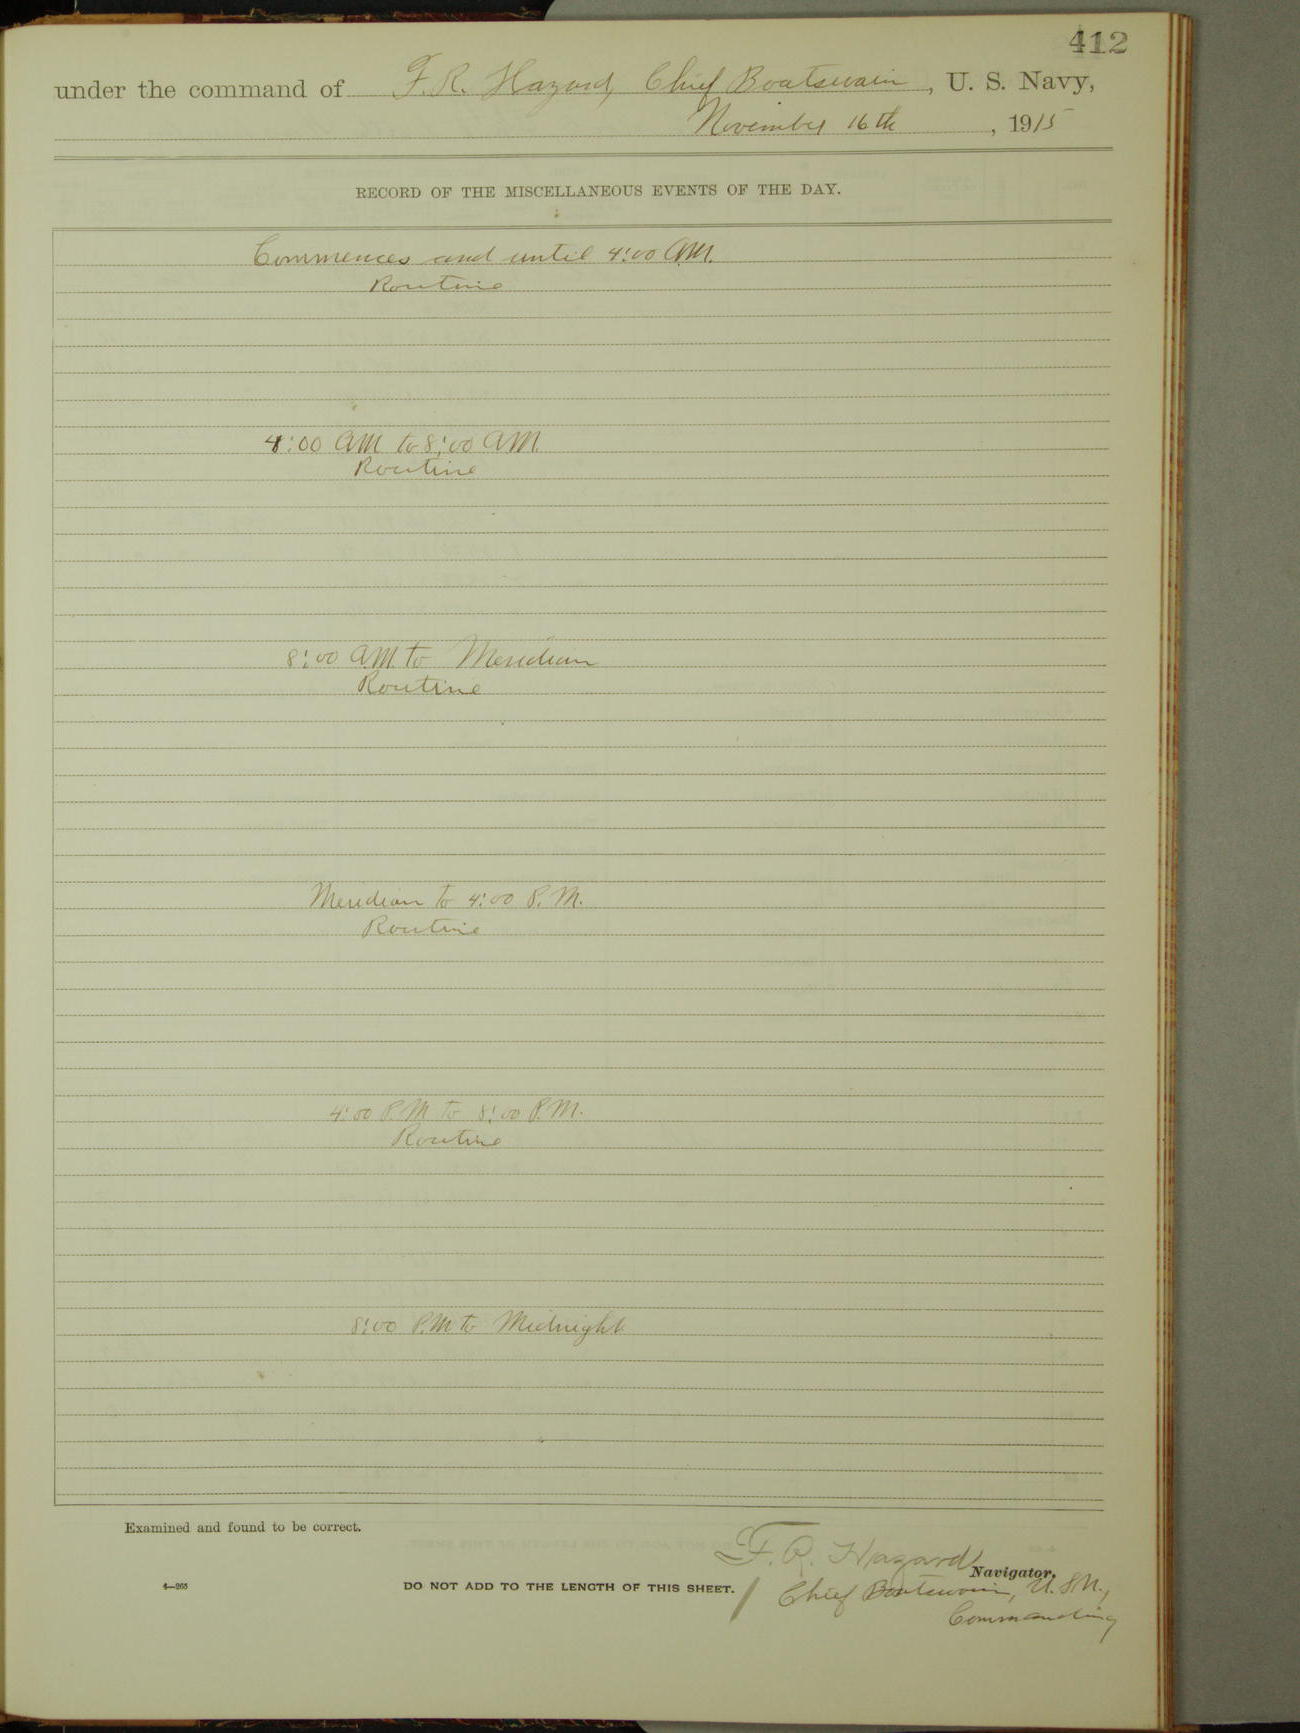 412
under the command of F. R. Hazard, Chief Boatswain, U. S. Navy,
November 16th, 1915
RECORD OF THE MISCELLANEOUS EVENTS OF THE DAY.
Commences and until 4:00 A.M.
Routine
4:00 AM to 8:00 AM.
Routine
8:00 A.M. to Meridian
Routine
Meridian to 4:00 P.M.
Routine
4:00 P.M to 8:00 P.M.
Routine
8:00 P.M to Midnight
Examined and found to be correct.
F. R. Hazard
Navigator.
4—265
DO NOT ADD TO THE LENGTH OF THIS SHEET.
Chief Boatswain, U.S.N.,
Commanding